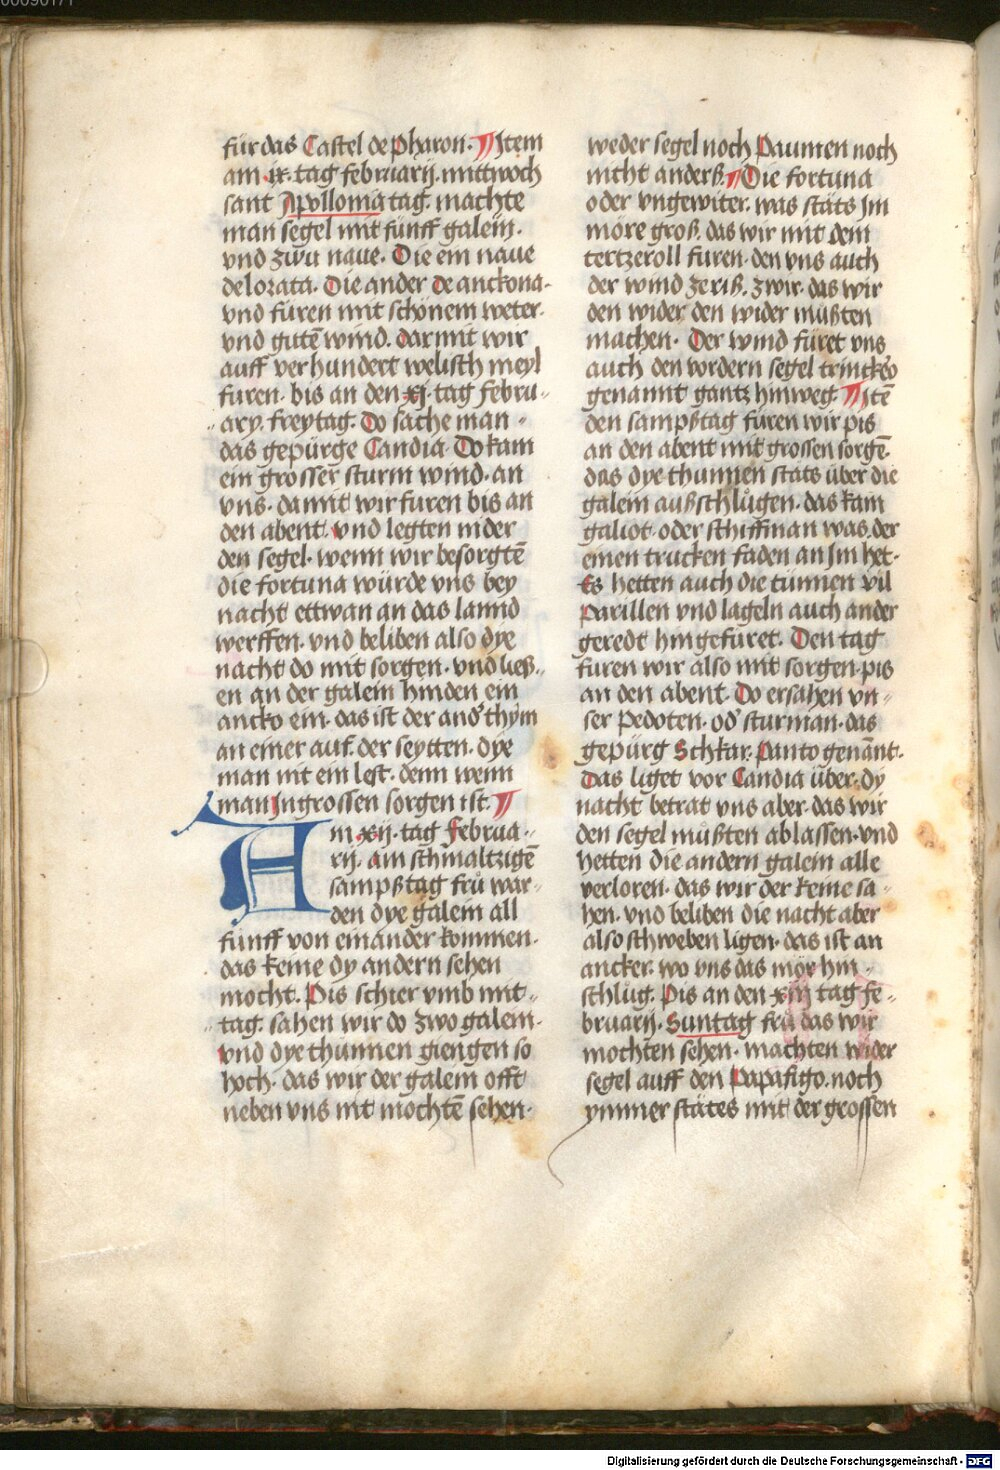 00090171
für das Castel de Pharon. ¶ Jtem
am .ix. tag februarij. mittwoch
sant Appollonia tag. machte
man segel mit fünff galein.
vnd zwu naue. Die ein naue
delorata. Die ander de anckona.
vnd füren mit schönem weter.
vnd gutē wind. darmit wir
auff ver hundert welisch meyl
furen. bis an den .xj. tag febru⸗
ary. freytag. Do sache man
das gepürge Candia. Do kam
ein grosser sturm wind. an
vns. damit wir furen bis an
den abent. vnd legten nider
den segel. wenn wir besorgtē
die fortuna würde vns bey
nacht ettwan an das lannd
werffen. vnd beliben also dye
nacht do mit sorgen. vnd ließ⸗
en an der galein hinden ein
ancko ein. das ist der and' thym
an einer auf. der seytten. dye
man nit ein lest. denn wenn
man Jn grossen sorgen ist. ¶
Am .xij. tag Februa⸗
rij. am schmaltzigē
sampßtag frů war⸗
den dye galein all
fünff von einander kommen.
das keine dy andern sehen
mocht. Pis schier vmb mit⸗
tag. sahen wir do zwo galein.
vnd dye thunnen giengen so
hoch. das wir der galein offt
neben vns nit mochtē sehen.
weder segel noch Paumen noch
nicht anderß. ¶ Die fortuna
oder vngewiter. was stäts Jm
möre groß. das wir mit dem
tertzeroll furen. den vns auch
der wind zeriß. zwir. das wir
den wider den wider mußten
machen. Der wind füret vns
auch den vordern segel trinckeo
genannt gantz hinweg. ¶ Jtē
den sampßtag füren wir pis
an den abent mit grossen sorgē.
das dye thunnen stäts über die
galein außschlůgen. das kain
galiot. oder schiffman was. der
einen trucken faden an Jm het.
Es hetten auch die tünnen vil
Parillen vnd lageln auch ander
geredt hingefüret. Den tag
furen wir also mit sorgen. pis
an den abent. Do ersahen vn⸗
ser Pedoten. od' sturman. das
gepürg Schkar. Panto genāt.
Das liget vor Candia über. dy
nacht betrat vns aber. das wir
den segel mußten ablassen. vnd
hetten die andern galein alle
verloren. das wir der keine sa⸗
hen. vnd beliben die nacht aber
also schweben ligen. das ist an
ancker. wo vns das möre hin⸗
schlug. Pis an den xiij tag fe⸗
bruarij. Suntag frů das wir
mochten sehen. machten wider
segel auff den Papafigo. noch
ymmer stätes mit der grossen
Digitalisierung gefördert durch die Deutsche Forschungsgemeinschaft - DFG